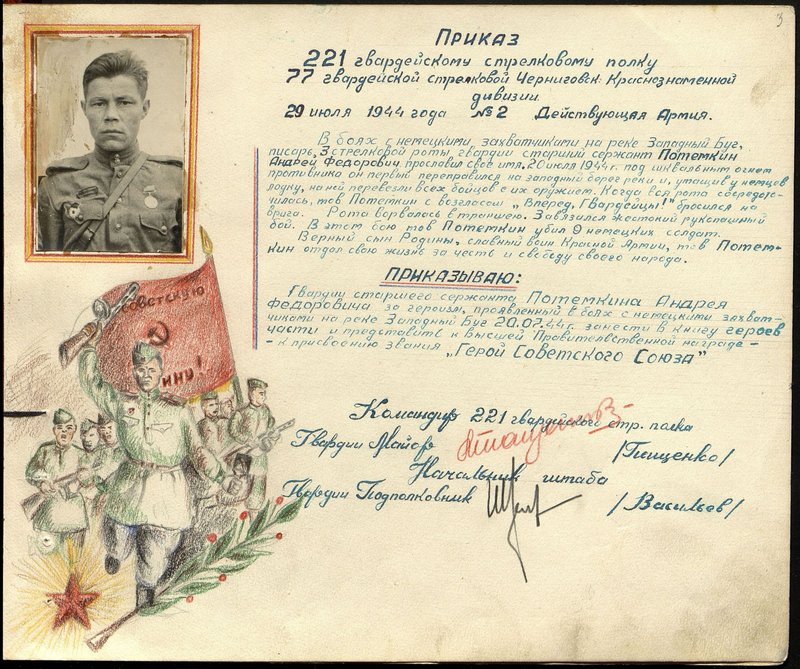 3
Приказ
221 гвардейскому стрелковому полку
77 гвардейской стрелковой Черниговск. Краснознаменной
дивизии
29 июля 1944 года №2 Действующая Армия.
В боях с немецкими захватчиками на реке Западный Буг,
писарь 3 стрелковой роты гвардии старший сержант Потемкин
Андрей Федорович прославил свое имя. 20 июля 1944 г. под шквальным огнем
противника он первый переправился на западный берег реки и, утащив у немцев
лодку, на ней перевез всех бойцов с их оружием. Когда вся рота сосредото-
чилась, тов Потемкин с возгласом „Вперед, Гвардейцы!" бросился на
врага. Рота ворвалась в траншею. Завязался жестокий рукопашный
бой. В этом бою тов Потемкин убил 9 немецких солдат.
Верный сын Родины, славный воин Красной Армии, тов Потем-
кин отдал свою жизнь за честь и свободу своего народа.
Приказываю:
Гвардии старшего сержанта Потемкина Андрея
Федоровича за героизм, проявленный в боях с немецкими захват-
чиками на реке Западный Буг 20.07.44 г. занести в книгу героев
части и представить к Высшей Правительственной награде -
- к присвоению звания „Герой Советского Союза"
Советскую
ину!
Командир 221 гвардейского стр. полка
Гвардии Майор /Пищенко/
Начальник штаба
Гвардии Подполковник /Васильев/